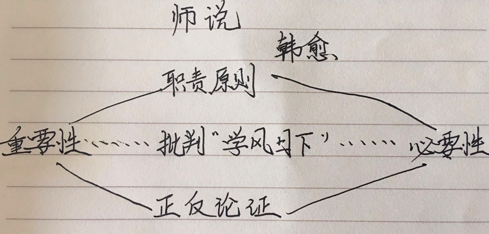 师说
韩愈
职责原则
重要性……批判"学风日下"……必要性
正反论证